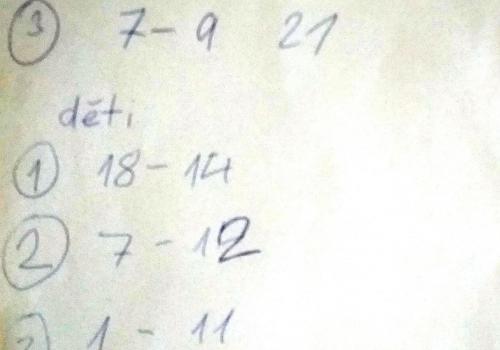 3 7 - 9 21
děti
1 18 - 14
2 7 - 12
1 - 11